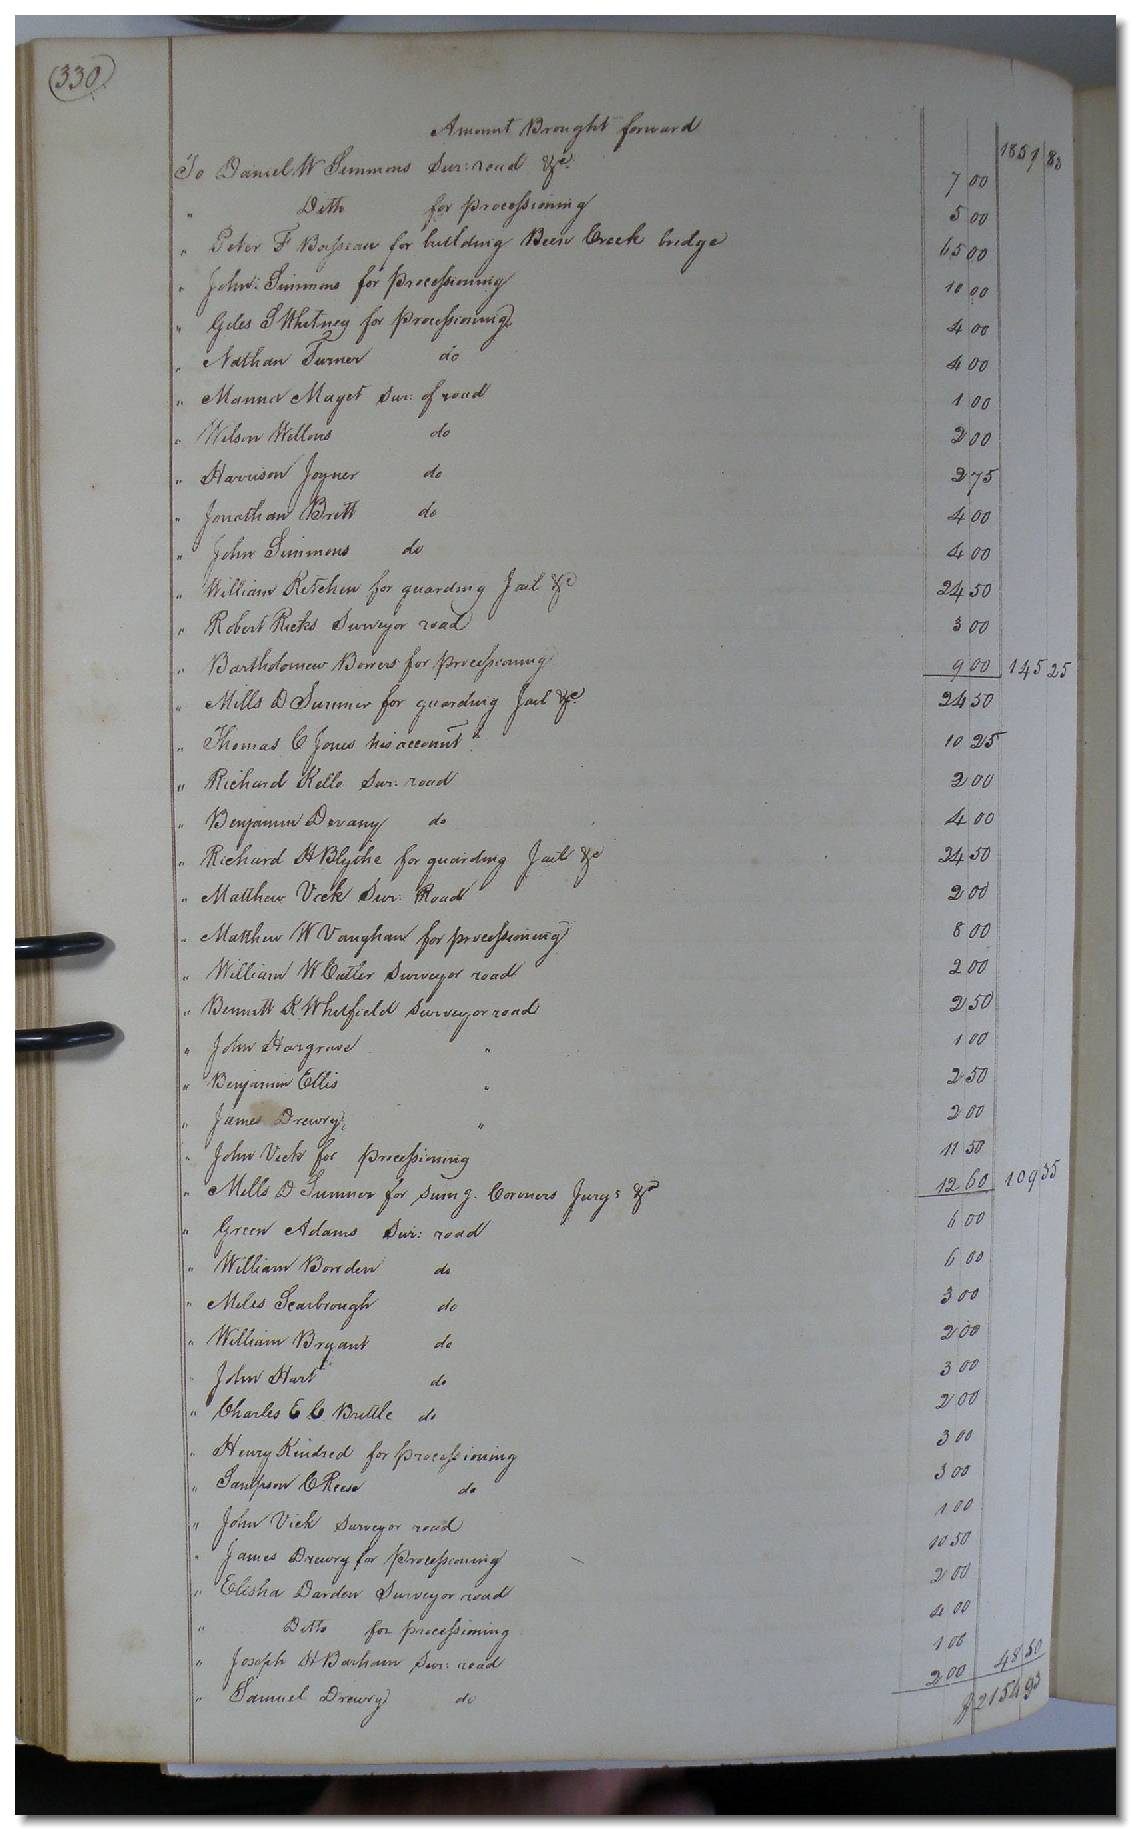 (330)
Amount Brought forward 1851 83
To Daniel W Simmons Sur: road &c. 7 00
" Ditto for processioning 5 00
" Peter F Boisseau for building Been Creek bridge 65 00
" John Simmons for processioning 10 00
" Giles S Whitney for processioning 4 00
" Nathan Turner do 4 00
" Manna Maget Sur: of road 1 00
" Wilson Wellons do 2 00
" Harrison Joyner do 2 75
" Jonathan Britt do 4 00
" John Simmons do 4 00
" William Kitchen for guarding Jail &c 24 50
" Robert Ricks Surveyor road 3 00
" Bartholomew Bowers for processioning 9 00 145 25
" Mills D Sumner for guarding Jail &c 24 50
" Thomas C Jones his account 10 25
" Richard Kello Sur. road 2 00
" Benjamin Devany do 4 00
" Richard H Blythe for guarding Jail &c 24 50
" Matthew Vick Sur. Road 2 00
" Matthew W Vaughan for processioning 8 00
" William W Cutler Surveyor road 2 00
" Bennett K Whitfield Surveyor road 2 50
" John Hargrave " 1 00
" Benjamin Ellis " 2 50
" James Drewry " 2 00
" John Vick for processioning 11 50
" Mills D Sumner for sumg. Coroners Jurys &c 12 60 109 35
" Green Adams Sur: road 6 00
" William Bowden do 6 00
" Miles Scarbrough do 3 00
" William Bryant do 2 00
" John Hart do 3 00
" Charles E C Brittle do 2 00
" Henry Kindred for processioning 3 00
" Sampson C Reese do 3 00
" John Vick Surveyor road 1 00
" James Drewry for Processioning 10 50
" Elisha Darden Surveyor road 2 00
" Ditto for processioning 4 00
" Joseph H Barham Sur: road 1 00
" Samuel Drewry do 2 00 48 50
$2154 93